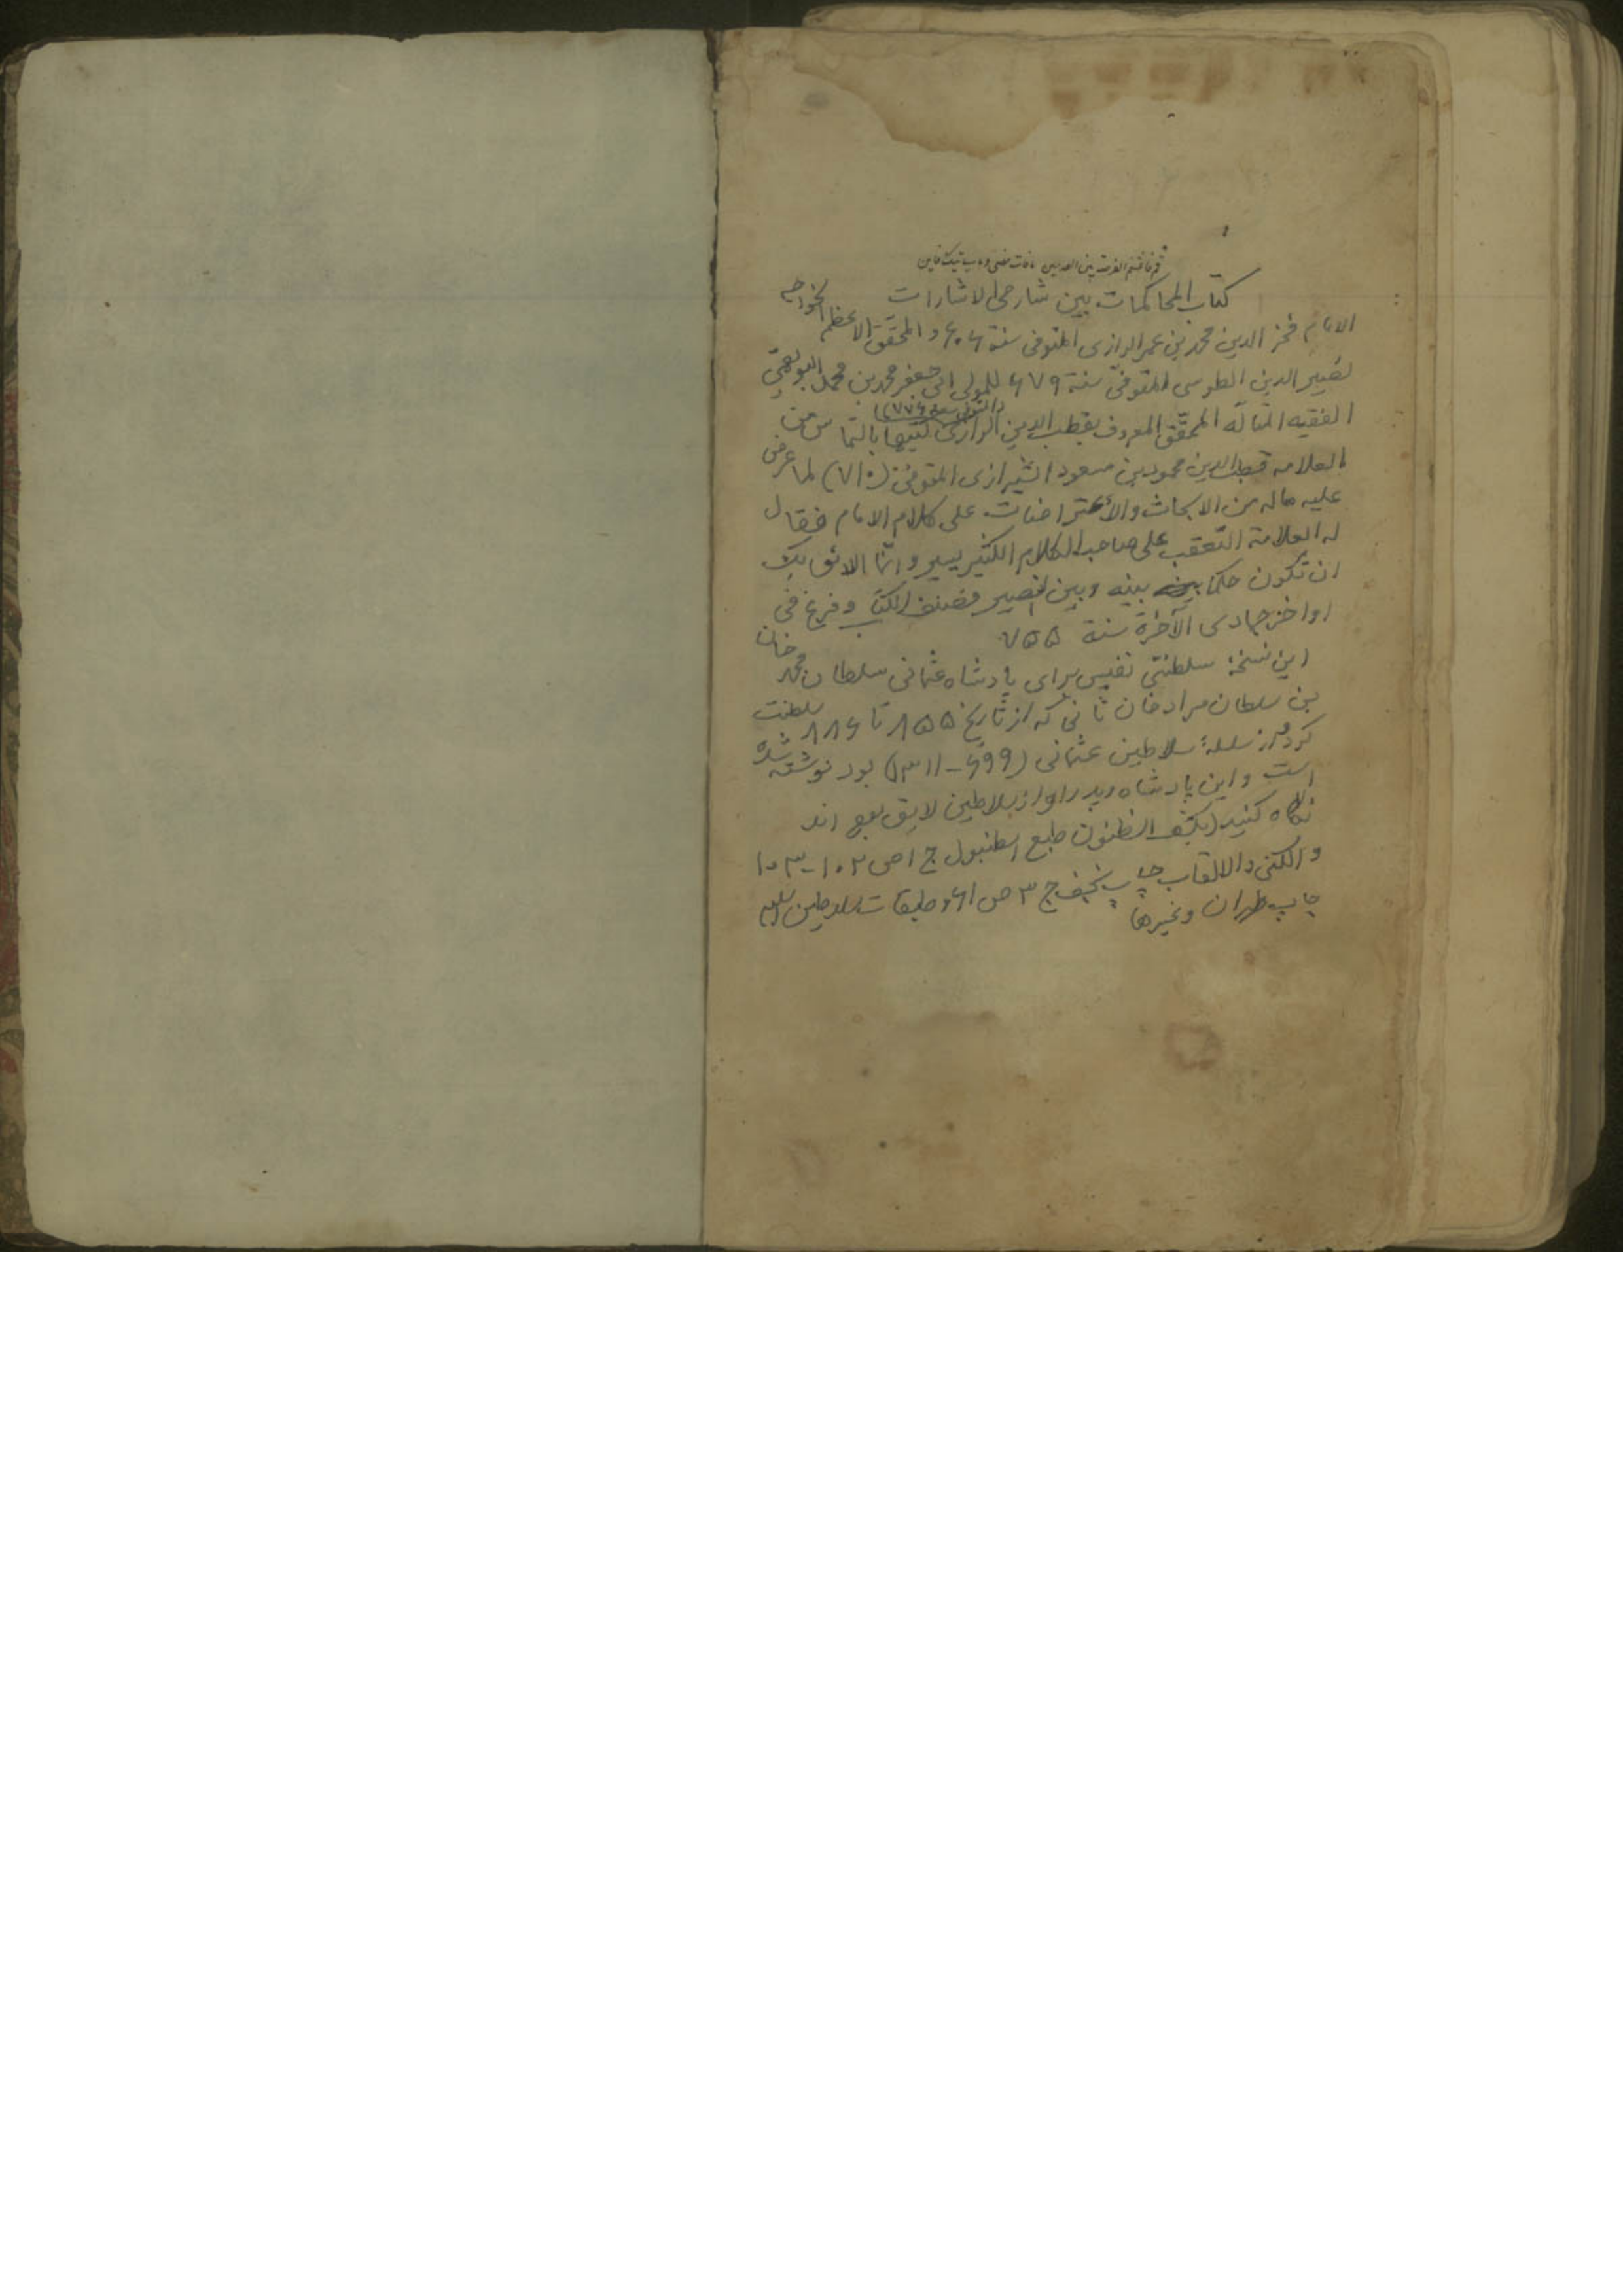 قم فاغتنم الفرصة بين العدمين مافات مضى وما سيأتيك فاين
كتاب المحاكمات بين شارحي الاشارات
الامام فخر الدين محمد بن عمر الرازى المتوفى سنة ۶۰۶ و المحقق الاعظم الخواجه
نصير الدين الطوسى المتوفىّ سنة ۶۷۹ للمولى ابى جعفر محمد بن محمد البويهىّ
(المتوفى سنة ۷۷۶)
الفقيه المتألّه المحقّق المعروف بقطب الدين الرازى كتبها بالتماس من
العلامه قطب الدين محمود بن مسعود الشيرازى المتوفىّ (۷۱۰) لما عرض
عليه ماله من الابحاث والأعتراضات على كلام الامام فقال
له العلامة التّعقب على صاحب الكلام الكثير يسير و انّما الائق بك
ان تكون حكما بينه وبين النصير فصنف الكتاب وفرغ فى
اواخر جمادى الآخرة سنة ۷۵۵
اين نسخۀ سلطنتى نفيس براى پادشاه عثمانى سلطان محمد خان
بن سلطان مراد خان ثانى كه از تاريخ ۸۵۵ تا ۸۸۶ سلطنت
كرده و از سلسلۀ سلاطين عثمانى (۶۹۹-۱۳۱۱) بود نوشته شده
است و اين پادشاه و پدر او از سلاطين لايق بوده اند
نگاه كنيد (بكشف الظنون طبع اسطنبول ج ۱ ص ۱۰۲-۱۰۳
و الكنى و الالقاب چاپ نجف ج ۳ ص ۶۱ و طبقات سلاطين اسلام
چاپ طهران وغيرها